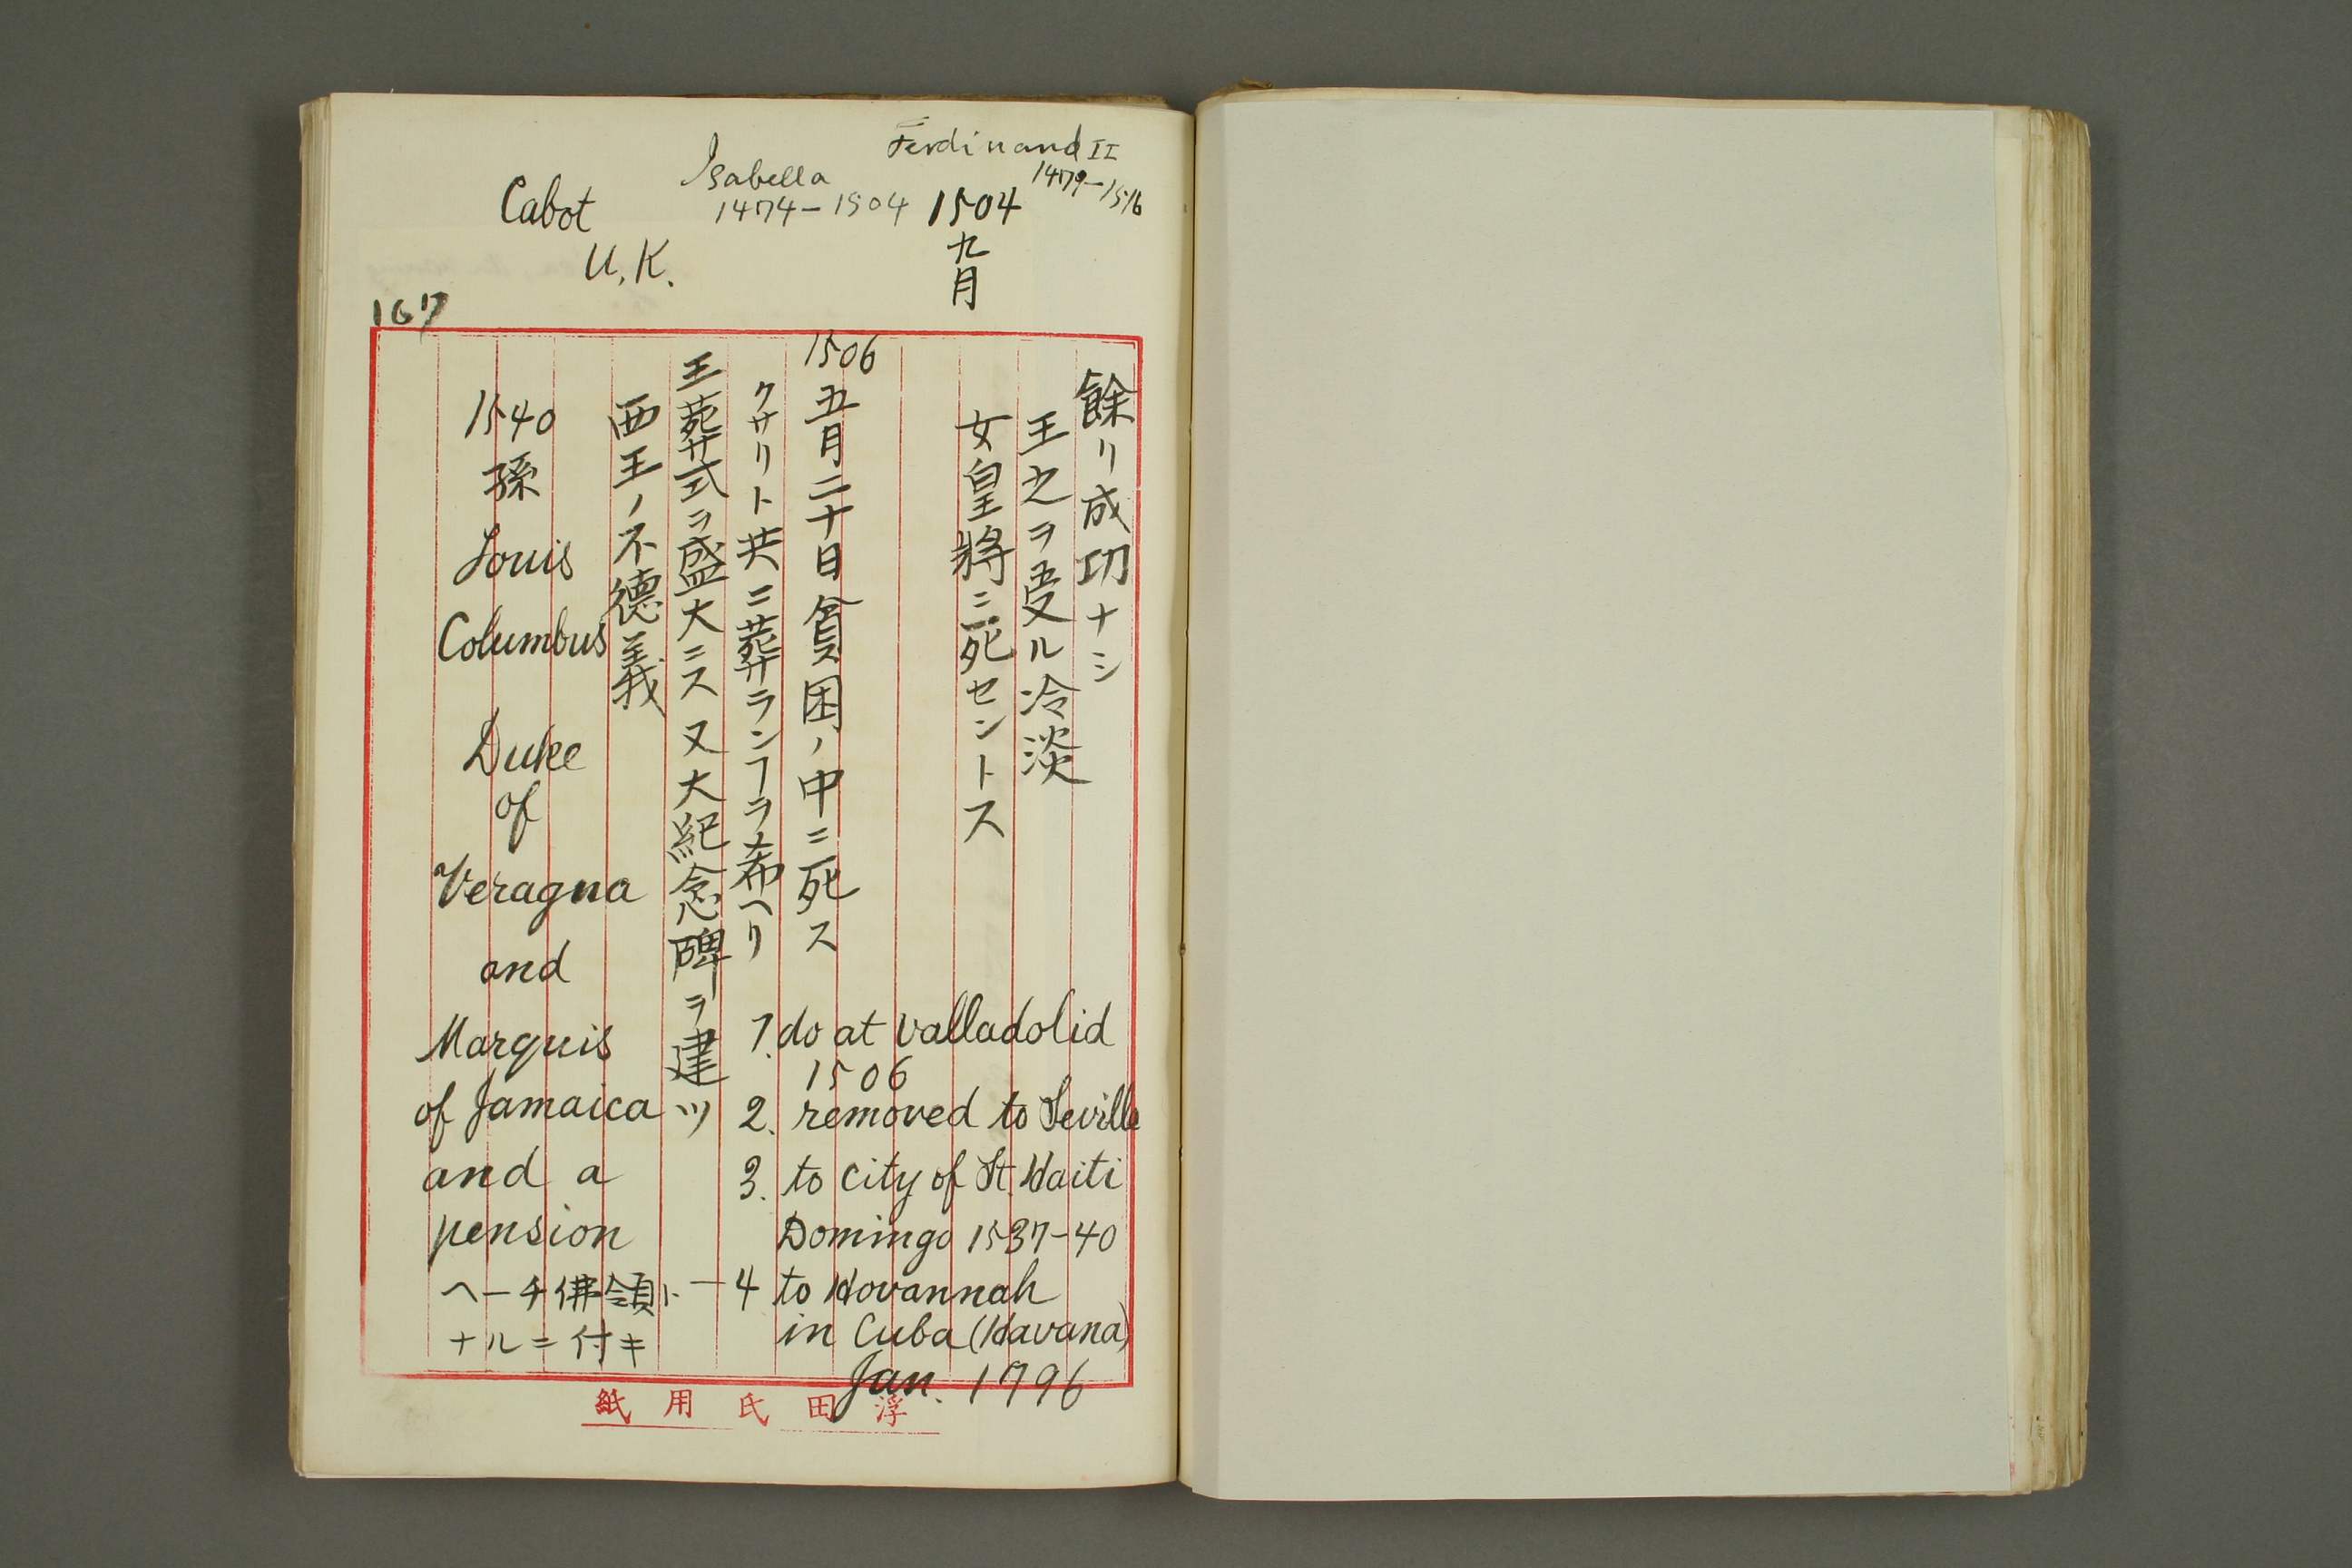 Ferdinand II
1479-1516
Isabella
1474-1504
1504
九月
Cabot
U.K.
167
餘リ成功ナシ
王之ヲ受ル冷淡
女皇將ニ死セントス
1506
五月二十日貧困ノ中ニ死ス
クサリト共ニ葬ラレンヿヲ希ヘリ
王葬式ヲ盛大ニス又大紀念碑ヲ建ツ
西王ノ不德義
1. do at Valladolid
1506
2. removed to Seville
3. to city of St. Haiti
Domingo 1537-40
4 to Hovannah
in Cuba (Havana)
Jan. 1796
1540
孫
Louis
Columbus
Duke
of
Veragua
and
Marquis
of Jamaica
and a
pension
ヘーチ佛領ト
ナルニ付キ
浮田氏用紙